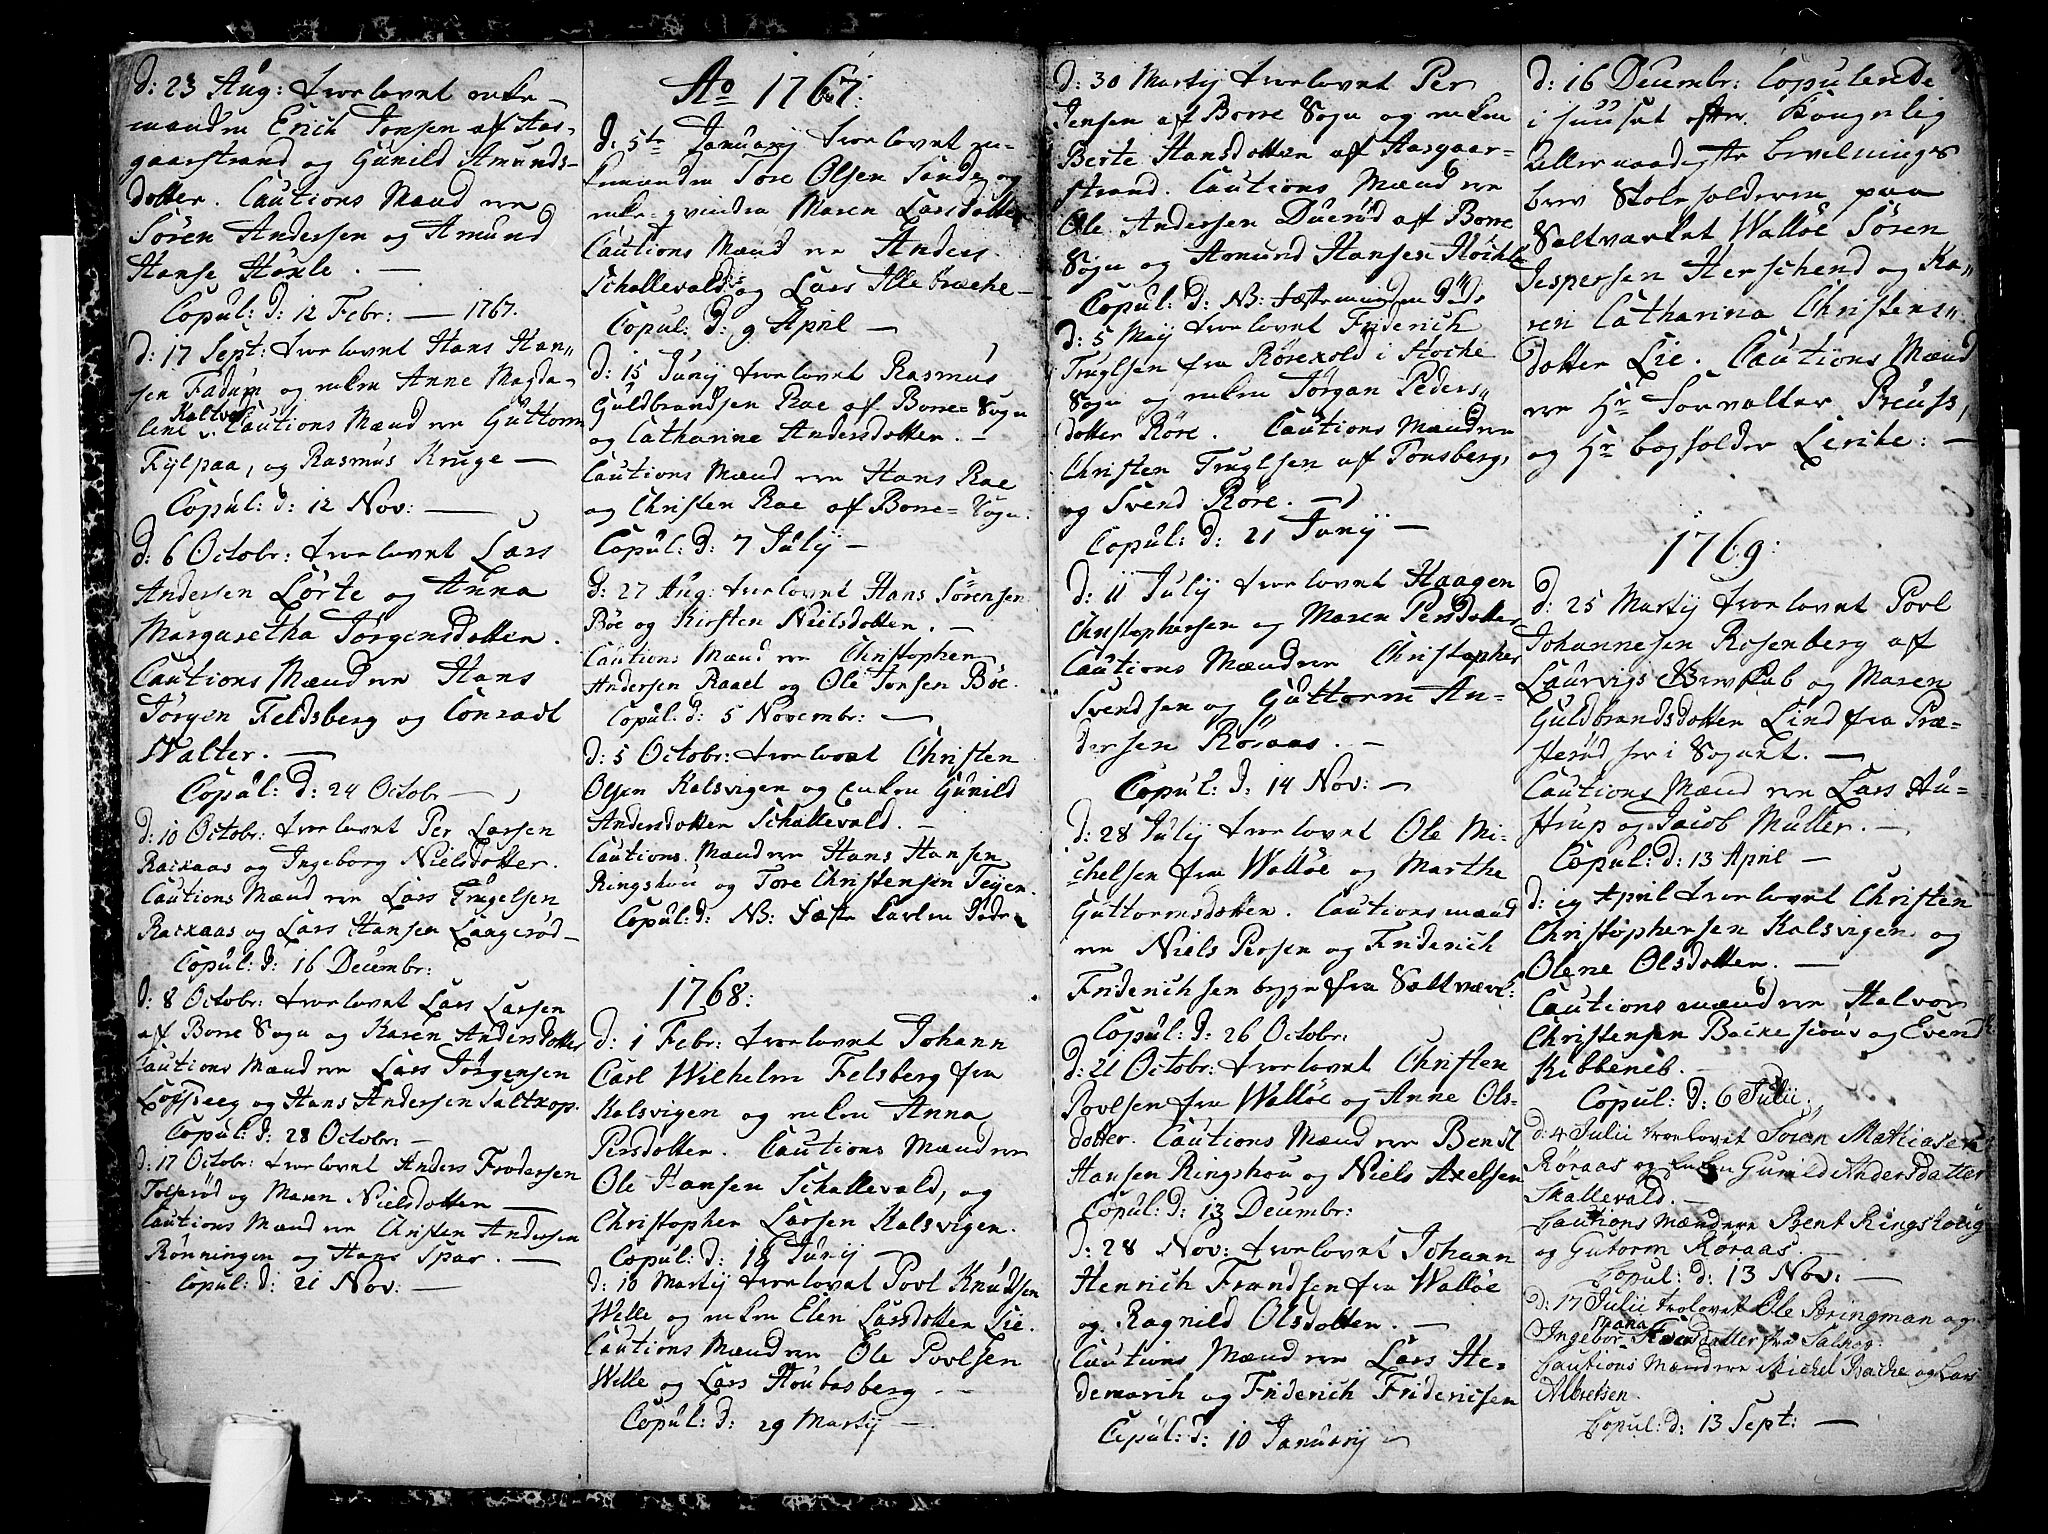 d: 23 Aug: trolovet enke-
manden Erich Jonsen af Aas-
gaarstrand og Gunild Amunds-
dotter. Cautions Mænd ere
Sören Andersen og Amund
Hanse
Copul: d: 12 Febr: — 1767.
d: 17 Sept: trolovet Hans Han-
sen Fadum og enken Anne Magda-
lene Cautions Mænd ere Guttorm
Fylpaa, og Rasmus Kruge —
Copul: d: 12 Nov: —
d: 6 Octobr: trolovet Lars
Andersen Lörte og Anna
Margaretha Jörgensdotter.
Cautions Mænd ere Hans
Jörgen Feldsberg og Conradt
Walter. —
Copul: d: 24 Octobr —
d: 10 Octobr: trolovet Per Larsen
Rackaas og Ingeborg Nielsdotter.
Cautions Mænd ere Lars Trugelsen
Rackaas og Lars Hansen Laagerød —
Copul: d: 16 Decembr:
d: 8 Octobr: trolovet Lars Larsen
af Borre Sogn og Karen Andersdotter
Cautions Mænd ere Lars Jörgensen
og Hans Andersen Saltkop.
Copul: d: 28 Octobr: —
d: 17 Octobr: trolovet Anders Frodersen
Tolsrød og Maren Nielsdotter —
Cautions Mænd ere Christen Andersen
Rönningen og Hans Spar. —
Copul: d: 21 Nov: —
Ao 1767:
d: 5te Januarij trolovet en-
kemanden Tore Olsen Sande og
enke-qvinden Maren Larsdotter
Cautions Mænd ere Anders
Schallevald og Lars Illebræche —
Copul: d: 9 April —
d: 15 Junij trolovet Rasmus
Guldbrandsen Rae af Borre-Sogn
og Catharine Andersdotter. —
Cautions Mænd ere Hans Rae
og Christen Rae af Borre-Sogn.
Copul: d: 7 Julij —
d: 27 Aug: trolovet Hans Sörensen
Böe og Kirsten Nielsdotter. —
Cautions Mænd ere Christopher
Andersen Raael og Ole Jonsen Böe.
Copul: d: 5 Novembr: —
d: 5 Octobr: trolovet Christen
Olsen Kalsvigen og Enken Gunild
Andersdotter Schallevald. —
Cautions Mænd ere Hans Hansen
Ringshou og Tore Christensen Teijen.
Copul: d: NB: Fæste
1768:
d: 1 Febr: trolovet Johann
Carl Wilhelm Felsberg fra
Kalsvigen og enken Anna
Persdotter. Cautions Mænd ere
Ole Hansen Schallevald, og
Christopher Larsen Kalsvigen.
Copul: d: 18 Junij —
d: 10 Martij trolovet Povl Knudsen
Wille og enken Elen Larsdotter Lie.
Cautions Mænd ere Ole Povlsen
Wille og Lars Houbasberg —
Copul: d: 29 Martij —
d: 30 Martij trolovet Per
Jensen af Borre Sogn og enken
Berte Hansdotter af Aasgaar-
strand. Cautions Mænd ere
Ole Andersen Duerød af Borre
Sogn og Amund Hansen
Copul: d: NB:
d: 5 Maij trolovet Friderich
Truglsen fra Rörekold i Stocke
Sogn og enken Jörgan Peders-
dotter Röre. Cautions Mænd ere
Christen Truglsen af Tonsberg,
og Svend Röre. —
Copul: d: 21 Junij —
d: 11 Julij trolovet Haagen
Christophersen og Maren Persdotter
Cautions Mænd ere Christopher
Svendsen og Guttorm An-
dersen Röraas. —
Copul: d: 14 Nov: —
d: 28 Julij trolovet Ole Mi-
chelsen fra Wallöe og Marthe
Guttormsdotter. Cautions mænd
ere Niels Persen og Friderich
Friderichsen begge fra Saltværk:
Copul: d: 26 Octobr:
d: 21 Octobr: trolovet Christen
Povlsen fra Wallöe og Anne Ols-
dotter. Cautions Mænd ere Bendt
Hansen Ringshou og Niels Axelsen
Copul: d: 13 Decembr:
d: 28 Nov: trolovet Johann
Henrich Frandsen fra Wallöe
og Ragnild Olsdotter. —
Cautions Mænd ere Lars He-
demarck og Friderich Fridericsen
Copul: d: 10 Januarij —
d: 16 Decembr: Copulerede
i huuset efter Kongerlig
allernaadigste bevilnings
brev Skoleholderen paa
Saltvarket Wallöe Sören
Jespersen Herschend og Ka-
ren Catharina Christens-
dotter Lie. Cautions Mænd
ere Hr Forvalter Preuss,
og Hr boghholder Lericke: —
1769:
d: 25 Martij trolovet Povl
Johannesen Rosenberg af
Laurvigs Grevskab og Maren
Guldbrandsdotter Lind fra Præ-
sterød her i Sognet. —
Cautions Mænd ere Lars Au-
strup og Jacob Muller. —
Copul: d: 13 April —
d: 19 April trolovet Christen
Christophersen Kalsvigen og
Olene Olsdotter. —
Cautions mænd ere Halvor
Christensen Backeskous og Evend
Kibbeneb. —
Copul: d: 6 Julii.
d: 4 Julii trolovet Soren Mathiasen
Röraas og Enken Gunild Andersdatter
Skallevald. —
Cautions Mænd ere Bent Ringshoug
og Gutorm Röraas. —
Copul: d: 13 Nov: —
d: 17 Julii trolovet Ole Bringman og
Ingebor fra Saltkop:
Cautions Mænd ere Michel Bache og Lars
Albretsen.
Copul: d: 13 Sept: —